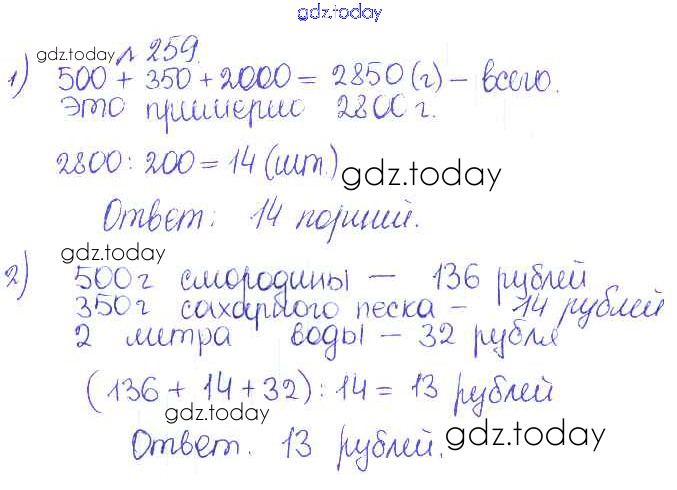 gdz.today
gdz.today № 259.
1) 500 + 350 + 2000 = 2850 (г) – всего.
Это примерно 2800 г.
2800 : 200 = 14 (шт.)
gdz.today
Ответ: 14 порций.
gdz.today
2) 500 г смородины – 136 рублей
350 г сахарного песка – 14 рублей
2 митра воды – 32 рубля
(136 + 14 + 32) : 14 = 13 рублей
gdz.today
Ответ. 13 рублей.
gdz.today